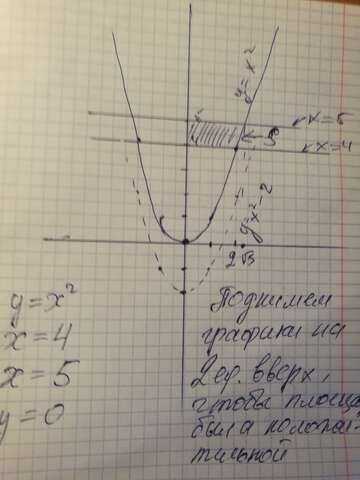 y = x²
x = 5
x = 4
← S
y = x² - 2
2 √5
y = x²
x = 4
x = 5
y = 0
Поднимем
графики на
2 ед. вверх,
чтобы площадь
была положи-
тельной